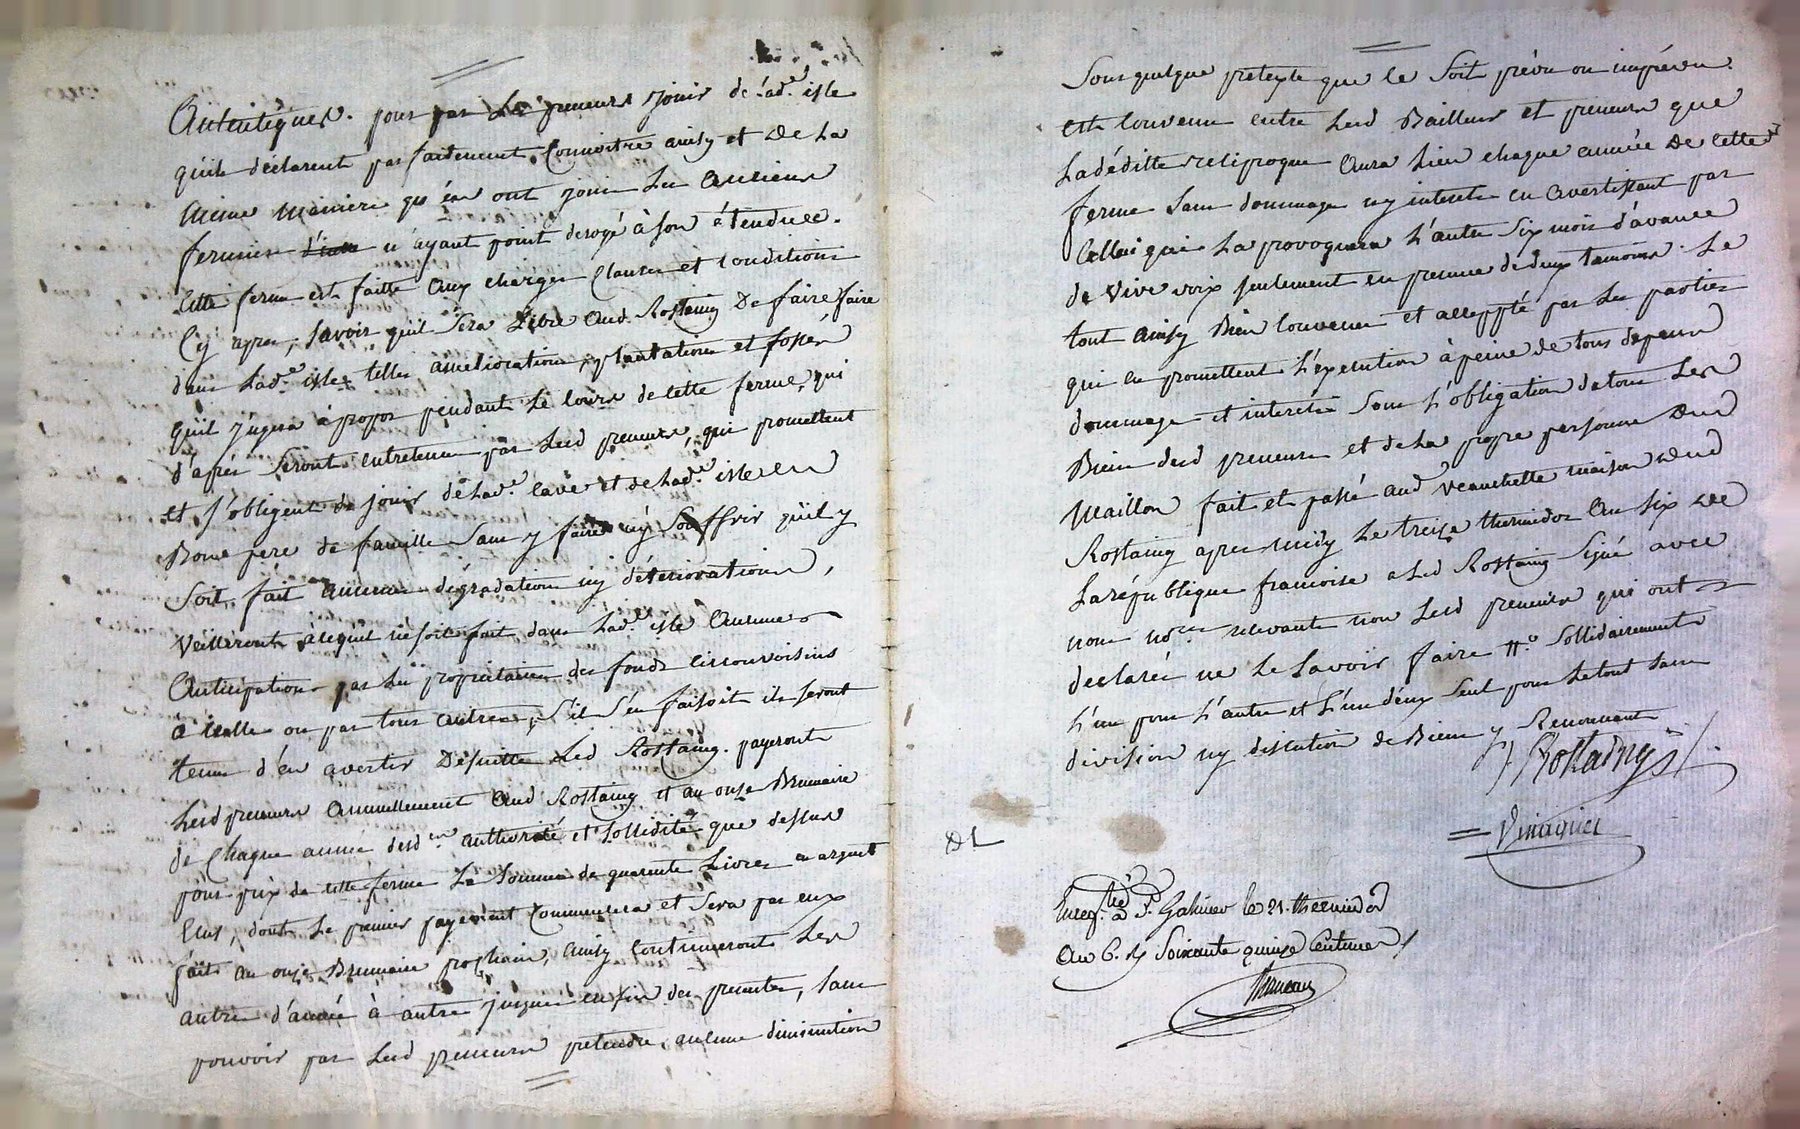 Autentiques. pour par Les preneurs jouir de l'ad.e isle
quils déclarent parfaitement Connoitre ainsy et De La
meme maniere qu'en ont joui Les anciens
fermiers n'ayant point derogé à son étendue.
Cette ferme est faitte aux charges Clauses et conditions
Cy apres, savoir quil sera Libre aud. Rostaing De faire faire
dans Lad.e isle telles ameliorations, plantations et fossés
quil jugera à propos pendant Le cours de cette ferme, qui
d'après seront entretenus par Lesd preneurs, qui promettent
et s'obligent de jouir de Lad.e cave et de Lad.e isle en
Bons pere de famille sans y faire ny Souffrir qu'il y
soit fait aucunes dégradations ny détériorations,
veilleront à cequil ne soit fait dans Lad.e isle Aucunes
Anticipations par Les propriétaires des fonds circonvoisins
à icelle ou par tous autres, s'il s'en faisoit ils seront
tenus d'en avertir Desuitte Led Rostaing. payeront
Lesd preneurs annuellement Aud Rostaing et au onze Brumaire
de Chaque année desd.en authorité et sollidité que dessus
pour prix de cette ferme La somme de quarente Livres en argent
Ecus, dont Le premier payement Commencera et sera par eux
fait au onze Brumaire prochain, ainsy continueront Les
autres d'année à autre jusques en fin des presentes, sans
pouvoir par Lesd preneurs pretendre, aucune diminution
Sous quelque pretexte que ce Soit prévu ou imprévu.
est Convenu entre Lesd Bailleur et preneurs que
La déditte reciproque aura Lieu chaque année De Cette
ferme sans dommages ny interets en avertissant par
Cellui qui La provoquera L'autre Six mois d'avance
de vive voix seulement en presence de deux temoins. Le
tout ainsy Bien Convenu et acceppté par Les parties
qui en promettent L'éxecution à peine de tous depens
dommages et interets sous L'obligation de tous Les
Biens desd preneurs et de La propre personne Dud
Maillon fait et passé aud veauchette maison dud
Rostaing apres midy Le treize thermidor an six de
La république francoise Led Rostaing Signé avec
nous no.re recevante non Lesd preneurs qui ont
declarés ne Le Savoir faire tt.e sollidairement
L'un pour L'autre et L'un deux seul pour Letout sans
division ny discution de Biens y Renoncant
Rostaing
DL
Enreg.tré à S.t Galmier le 21. thermidor
au 6. Rç Soixante quinze Centimes